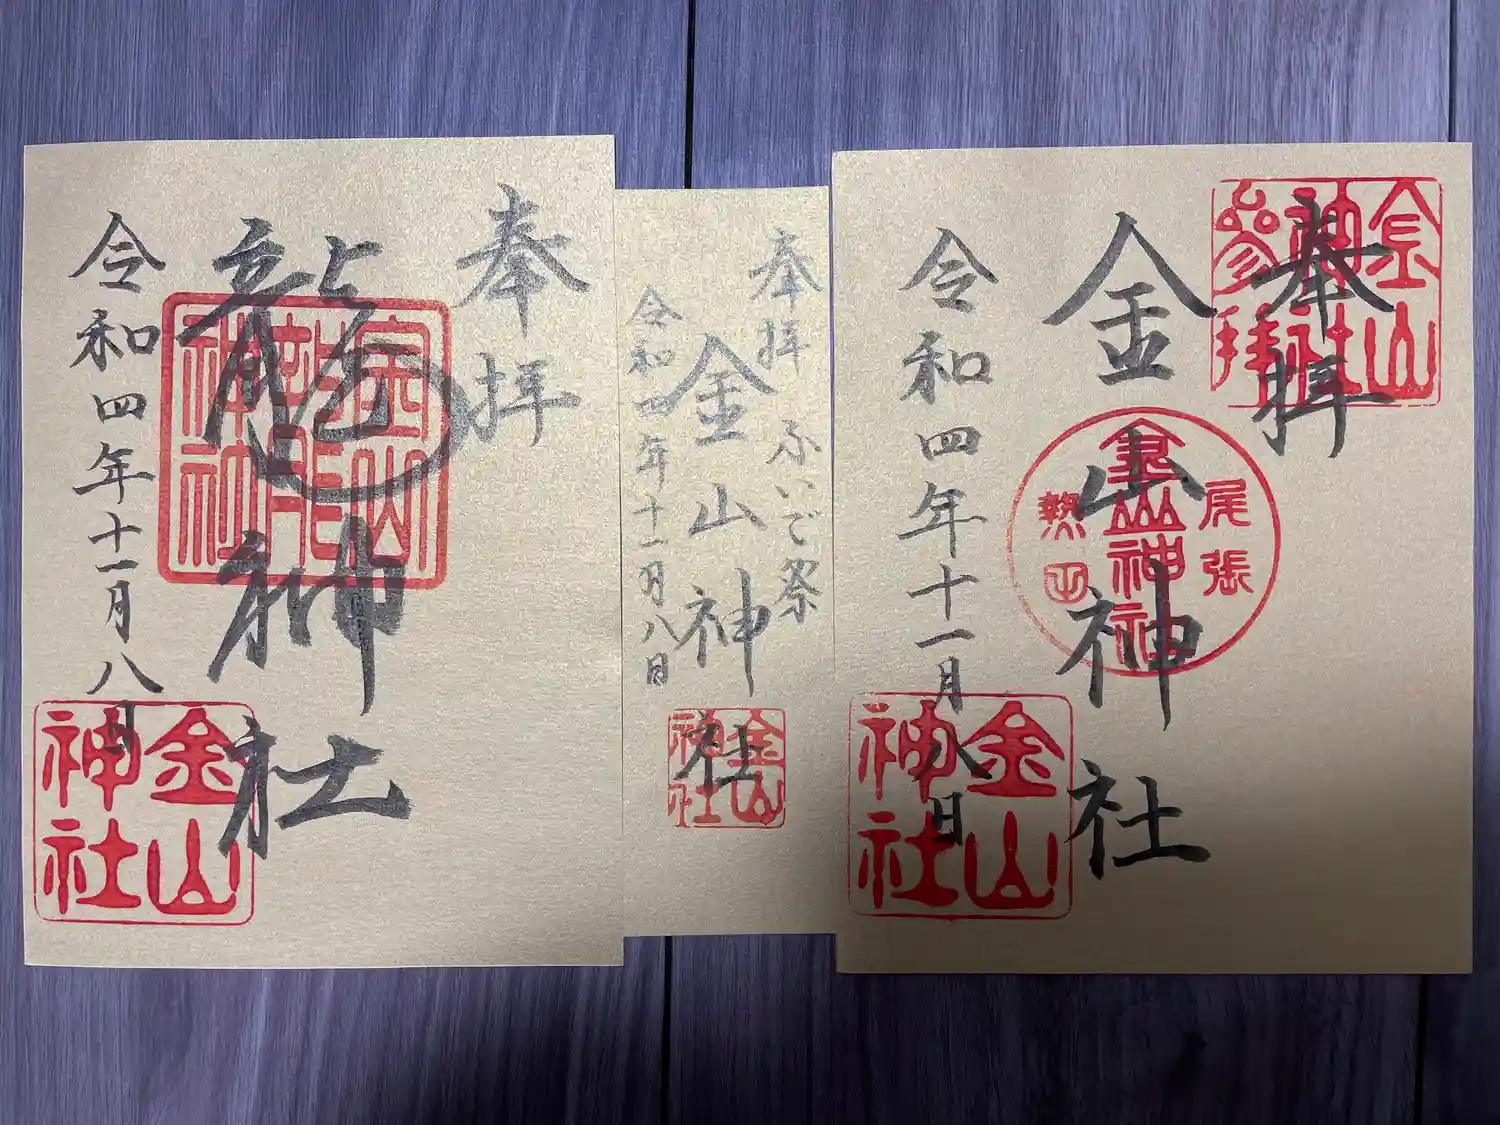 奉拝
龍神社
令和四年十一月八日
金山
神社
奉拝 ふいご祭
金山神社
令和四年十一月八日
金山
神社
奉拝
金山
神社
参拝
金山神社
尾張
金山神社
熱田
令和四年十一月八日
金山
神社